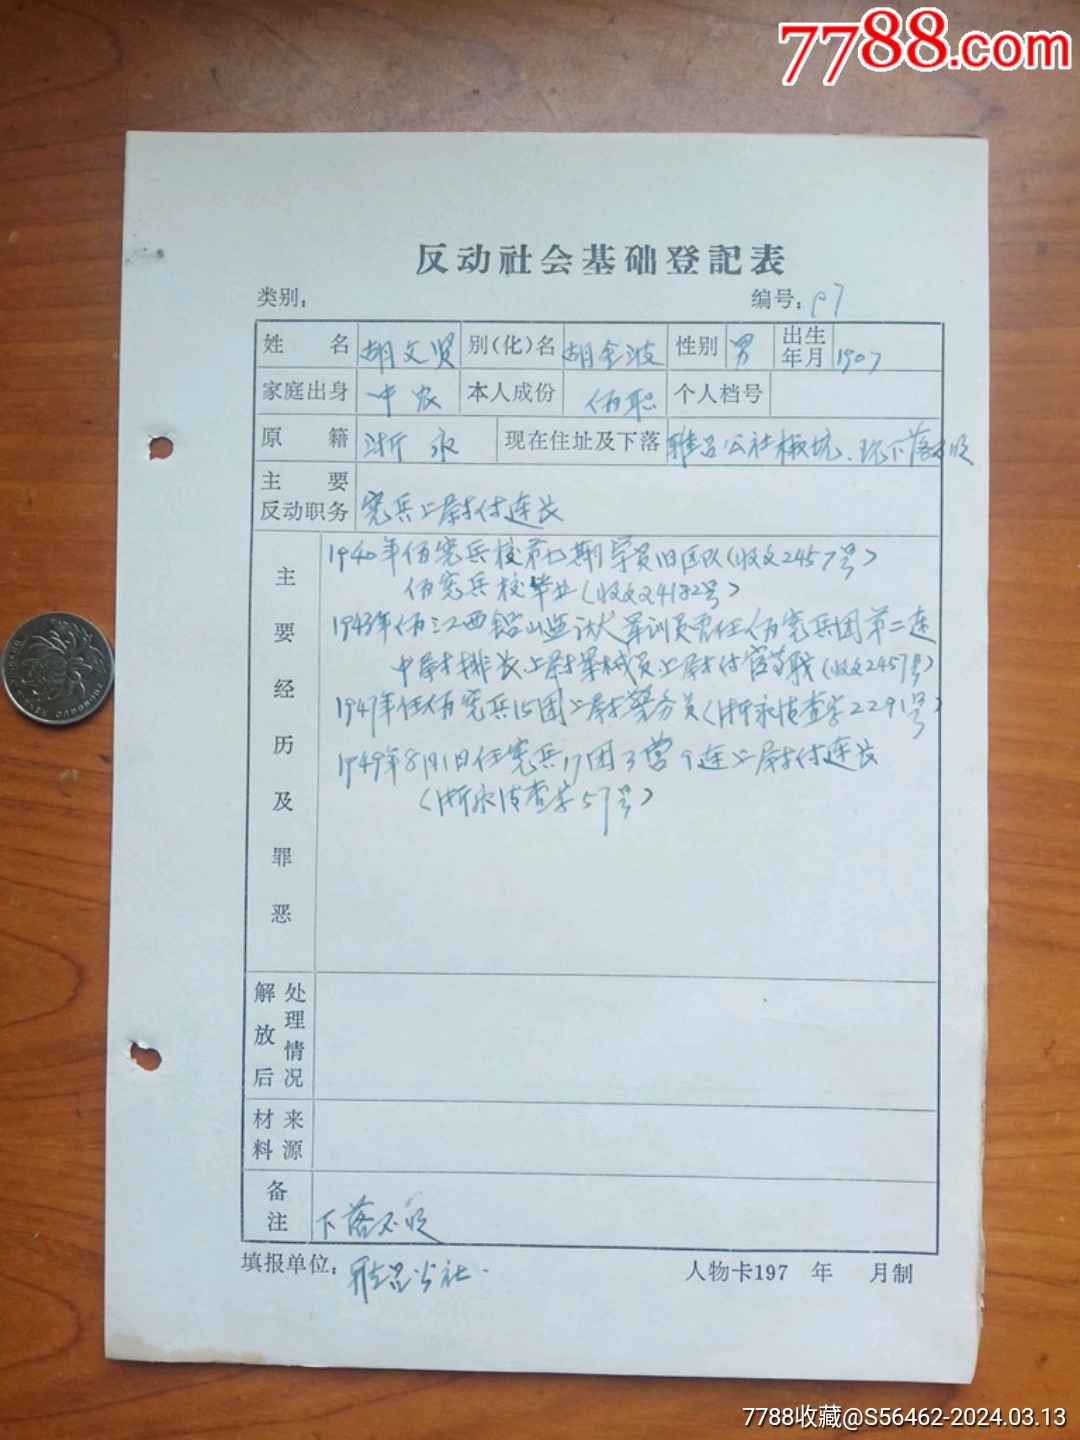 7788.com
反动社会基础登記表
类别： 编号：97
姓名 胡文贤 别(化)名 胡金波 性别 男 出生年月 1907
家庭出身 中农 本人成份 伪职 个人档号
原籍 浙永 现在住址及下落 雅吕公社 坑.现下落不明
主要反动职务 宪兵上尉付连长
主要经历及罪恶
1940年伪宪兵校第七期学员 区队(收文2457号)
伪宪兵校毕业(收文24182号)
1943年伪江西铅山 军训员曾任伪宪兵团第二连
中尉排长.上尉军械员.上尉付官等职(收文2457号)
1947年任伪宪兵15团上尉警务员(浙永法查字2291号)
1949年8月1日任宪兵17团3营9连上尉付连长
(浙永法查字57号)
解放后处理情况
材料来源
备注 下落不明
填报单位：雅吕公社. 人物卡197 年 月制
7788收藏@S56462-2024.03.13